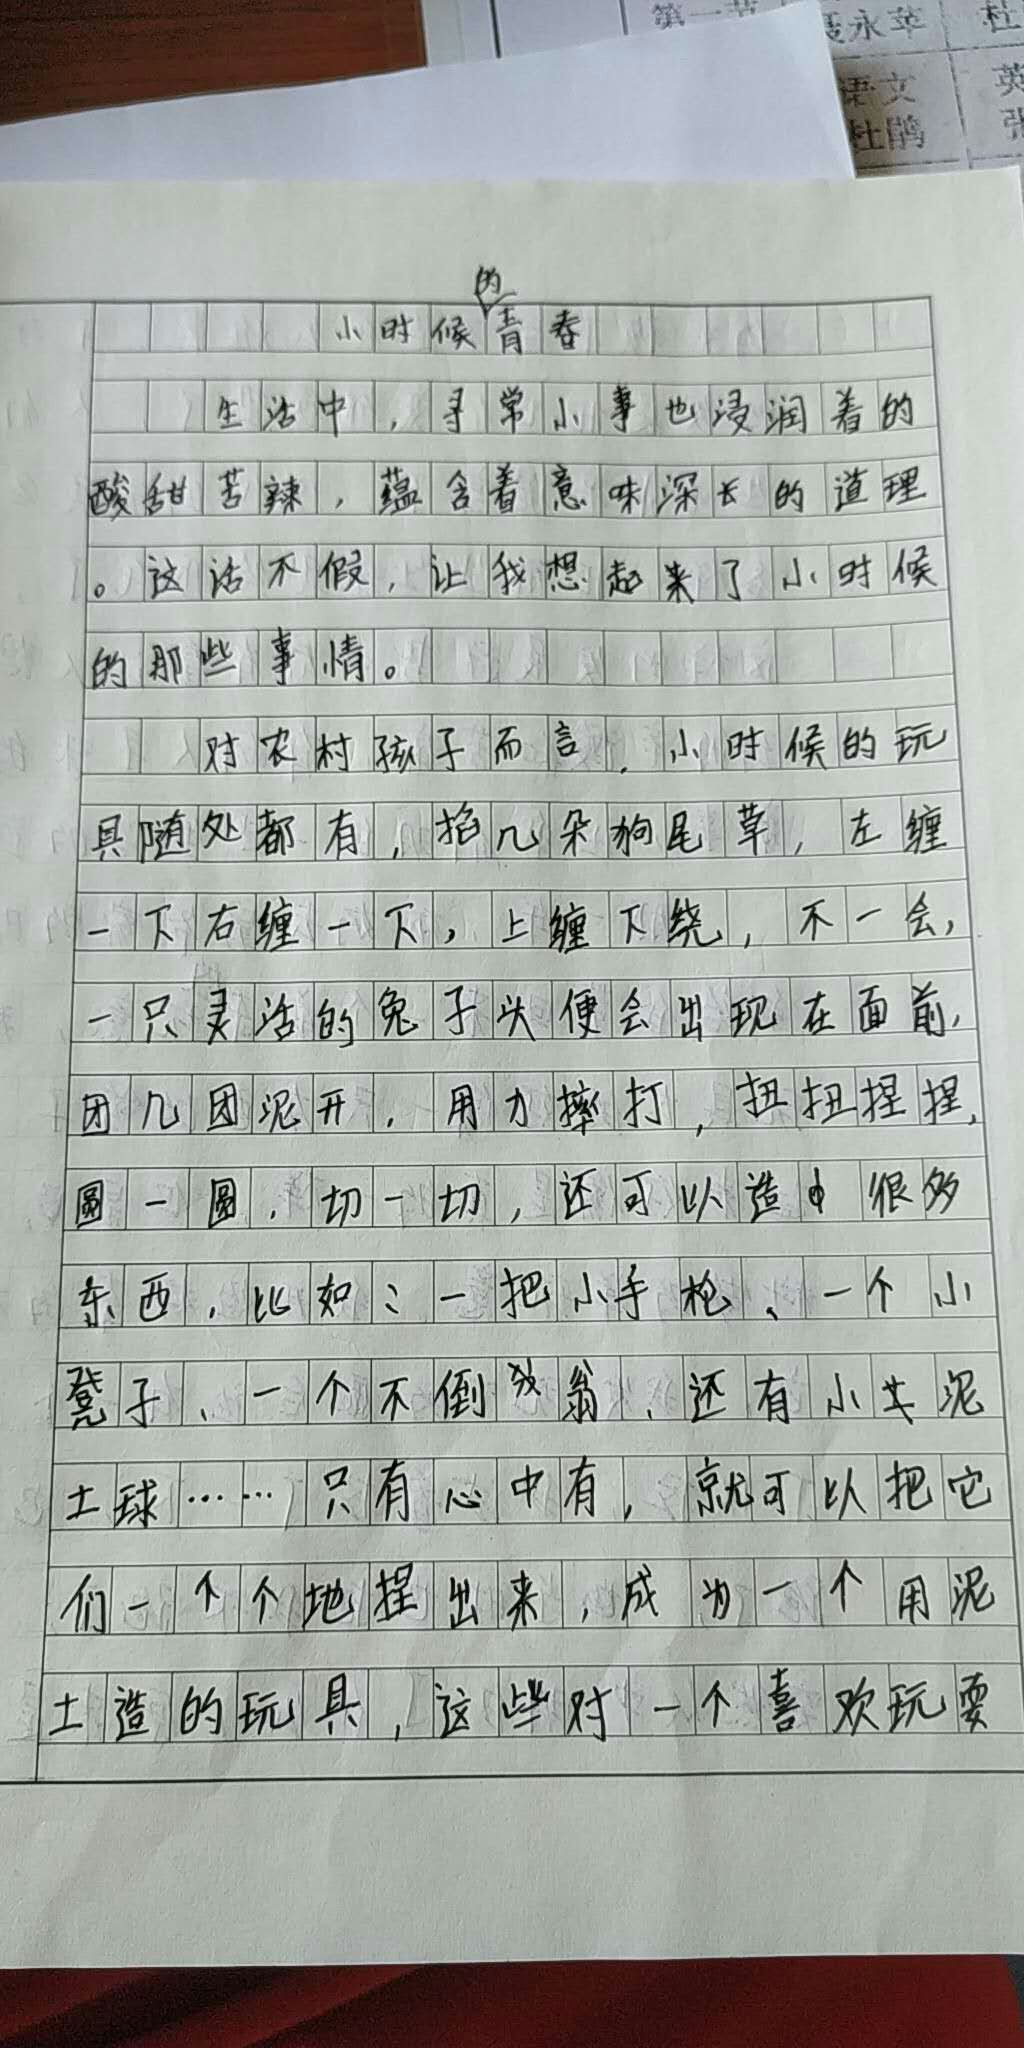 第一节 聂永苹 杜
语文 英
杜鹃 张
小时候的青春
生活中，寻常小事也浸润着的
酸甜苦辣，蕴含着意味深长的道理
。这话不假，让我想起来了小时候
的那些事情。
对农村孩子而言，小时候的玩
具随处都有，掐几朵狗尾草，左缠
一下右缠一下，上缠下绕，不一会，
一只灵活的兔子头便会出现在面前，
团几团泥开，用力摔打，扭扭捏捏，
圆一圆，切一切，还可以造中很多
东西，比如：一把小手枪、一个小
凳子、一个不倒我翁、还有小女泥
土球……只有心中有，就可以把它
们一个个地捏出来，成为一个用泥
土造的玩具，这些对一个喜欢玩耍